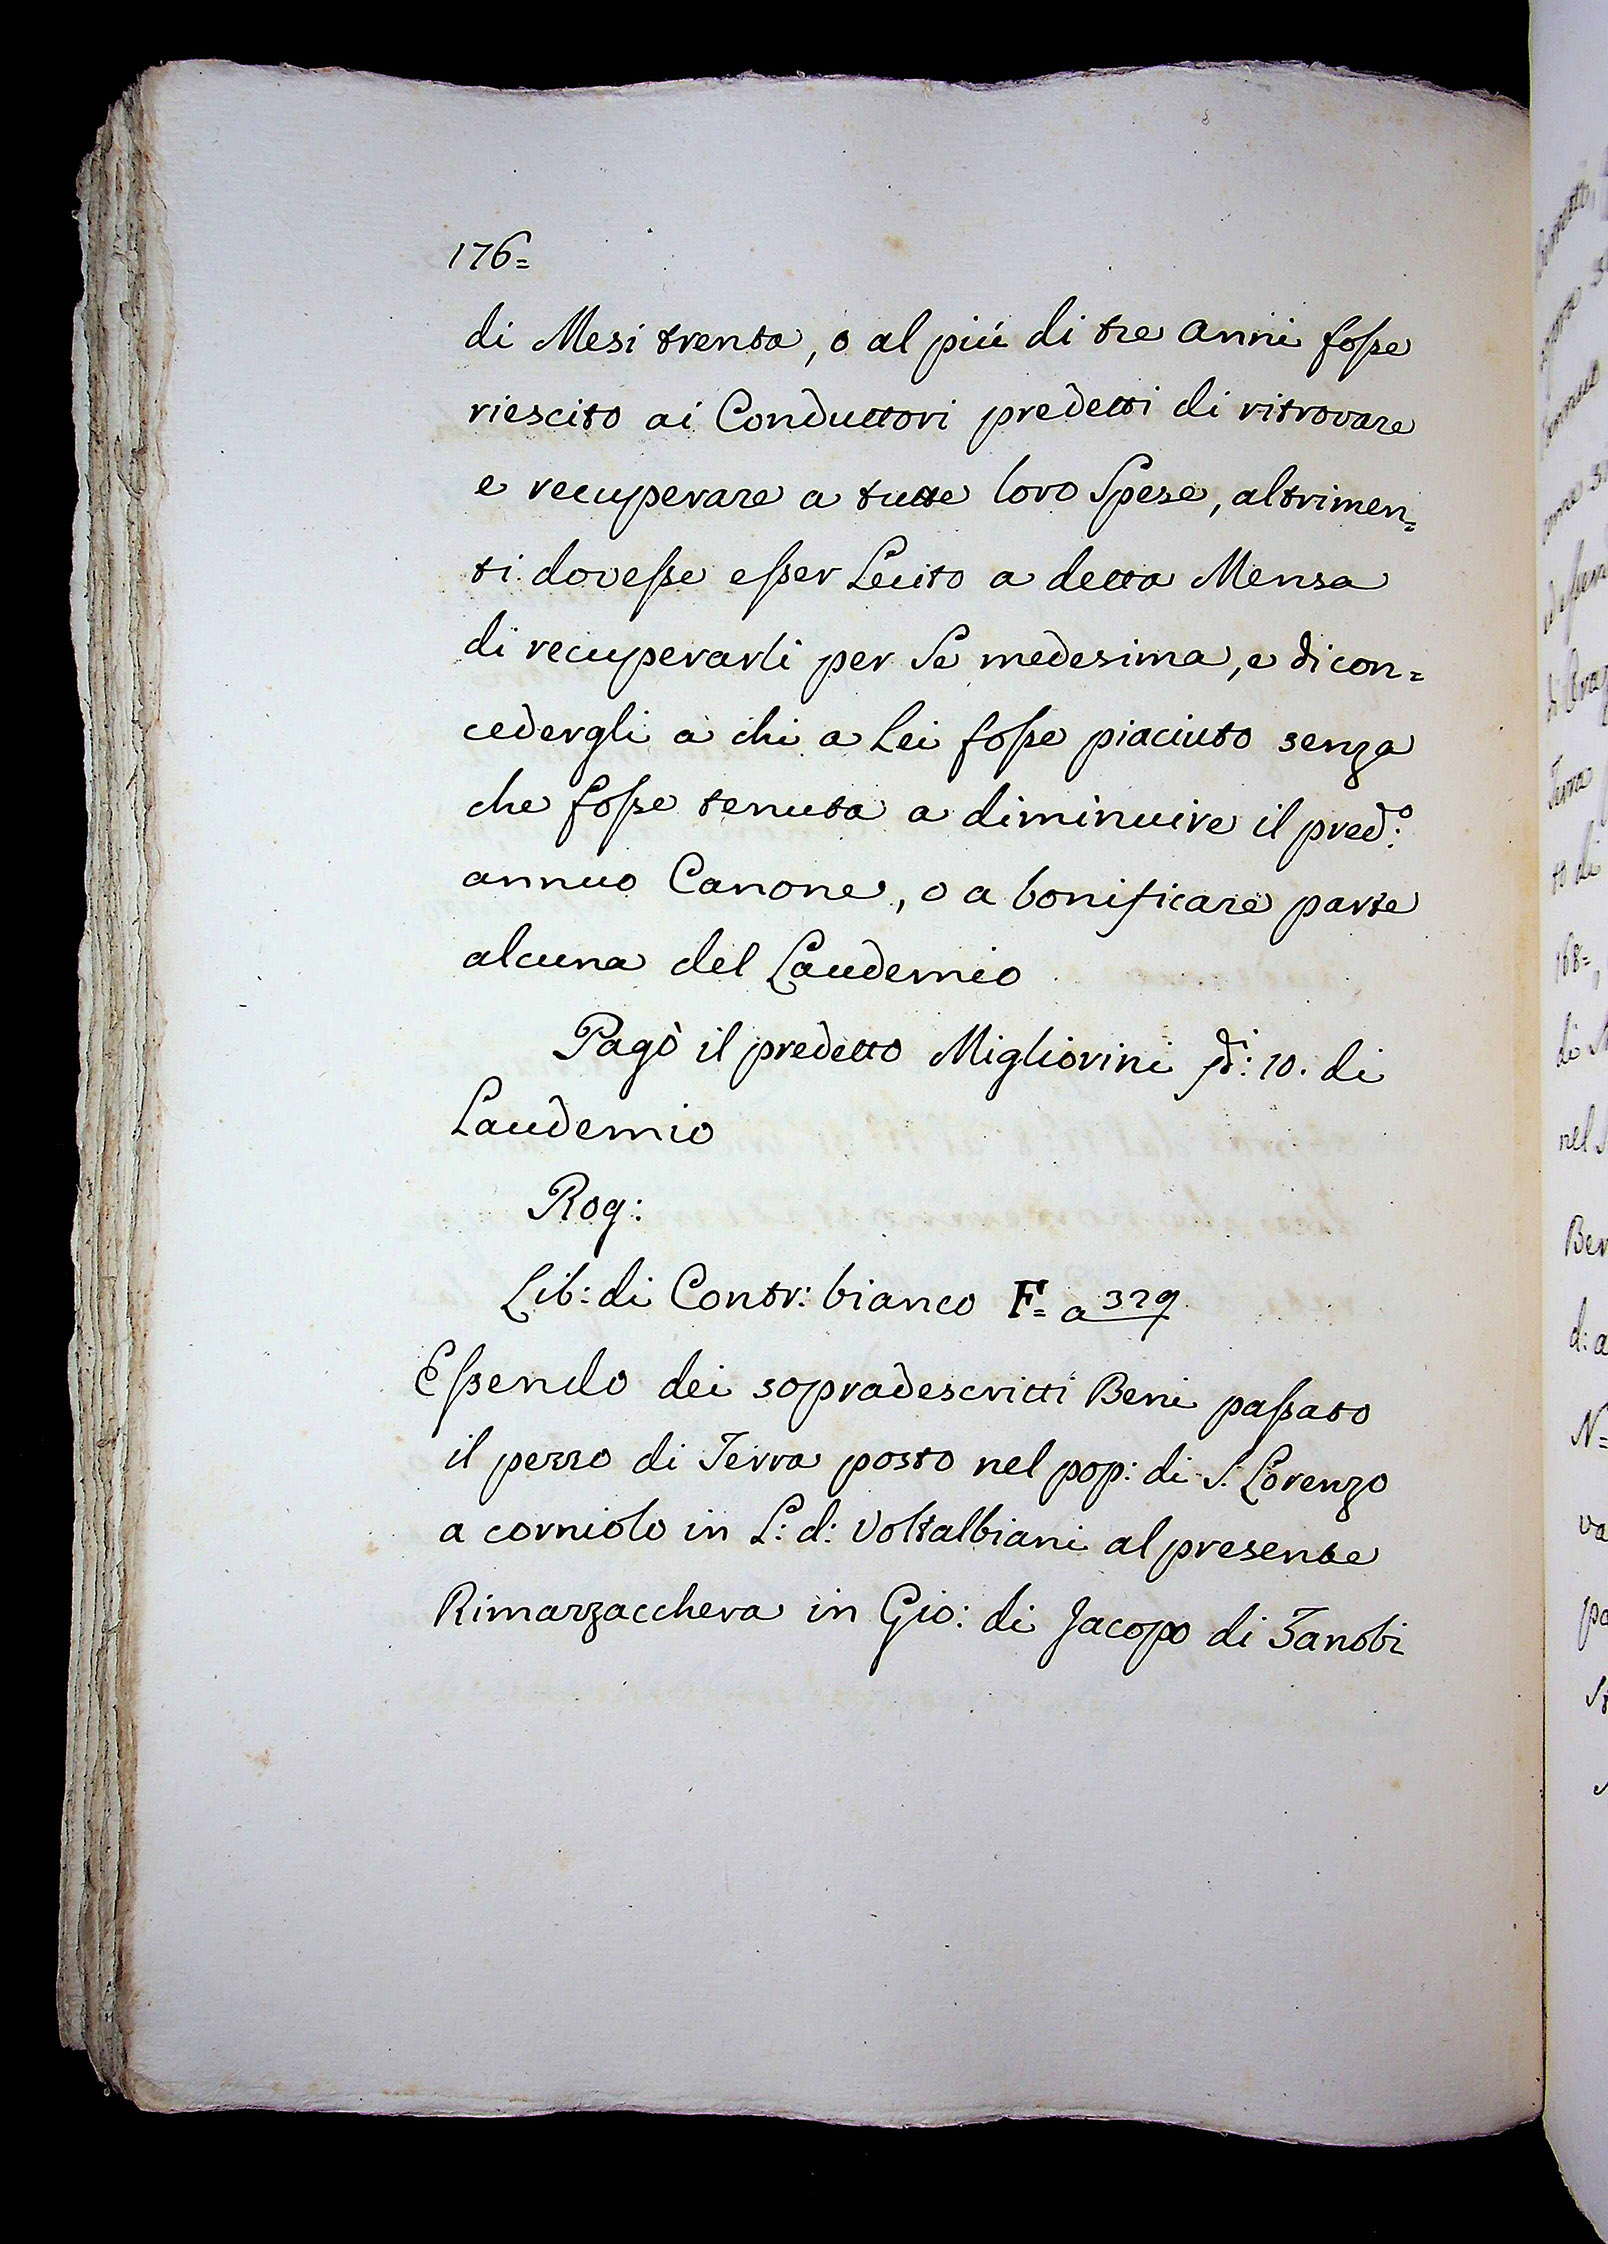 176=
di Mesi trenta, o al più di tre anni foſse
riescito ai Conduttori predetti di ritrovare
e recuperare a tutte loro Spese, altrimen=
ti doveſse eſser Lecito a detta Mensa
di recuperarli per Se medesima, e di con=
cedergli a chi a Lei foſse piaciuto senza
che foſse tenuta a diminuire il pred:º
annuo Canone, o a bonificare parte
alcuna del Laudemio
Pagò il predetto Migliorini 10. di
Laudemio
Rog:
Lib: di Contr: bianco F= a 329
Eſsendo dei sopradescritti Beni paſsato
il pezzo di Terra posto nel pop: di S. Lorenzo
a corniolo in L: d: Voltalbiani al presente
Rimazzacchera in Gio: di Jacopo di Zanobi